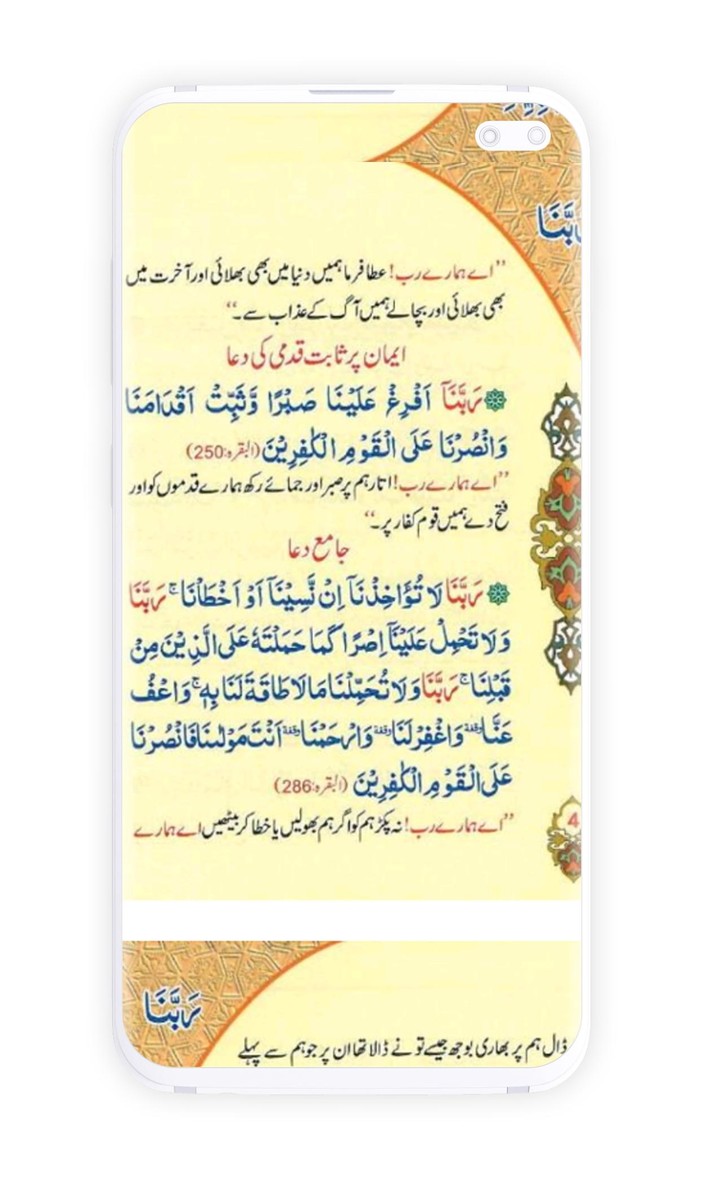 رَبَّنَا
”اے ہمارے رب! عطا فرما ہمیں دنیا میں بھی بھلائی اور آخرت میں
بھی بھلائی اور بچالے ہمیں آگ کے عذاب سے۔“
ایمان پر ثابت قدمی کی دعا
رَبَّنَآ اَفْرِغْ عَلَيْنَا صَبْرًا وَّثَبِّتْ اَقْدَامَنَا
وَانْصُرْنَا عَلَى الْقَوْمِ الْكٰفِرِيْنَ (البقرہ:250)
”اے ہمارے رب! اتار ہم پر صبر اور جمائے رکھ ہمارے قدموں کو اور
فتح دے ہمیں قوم کفار پر۔“
جامع دعا
رَبَّنَا لَا تُؤَاخِذْنَآ اِنْ نَّسِيْنَآ اَوْ اَخْطَاْنَا ۚ رَبَّنَا
وَلَا تَحْمِلْ عَلَيْنَآ اِصْرًا كَمَا حَمَلْتَهٗ عَلَى الَّذِيْنَ مِنْ
قَبْلِنَا ۚ رَبَّنَا وَلَا تُحَمِّلْنَا مَا لَا طَاقَةَ لَنَا بِهٖ ۚ وَاعْفُ
عَنَّا وقفة وَاغْفِرْ لَنَا وقفة وَارْحَمْنَا وقفة اَنْتَ مَوْلٰىنَا فَانْصُرْنَا
عَلَى الْقَوْمِ الْكٰفِرِيْنَ (البقرہ:286)
”اے ہمارے رب! نہ پکڑ ہم کو اگر ہم بھولیں یا خطا کر بیٹھیں اے ہمارے
4
رَبَّنَا
ڈال ہم پر بھاری بوجھ جیسے تو نے ڈالا تھا ان پر جو ہم سے پہلے